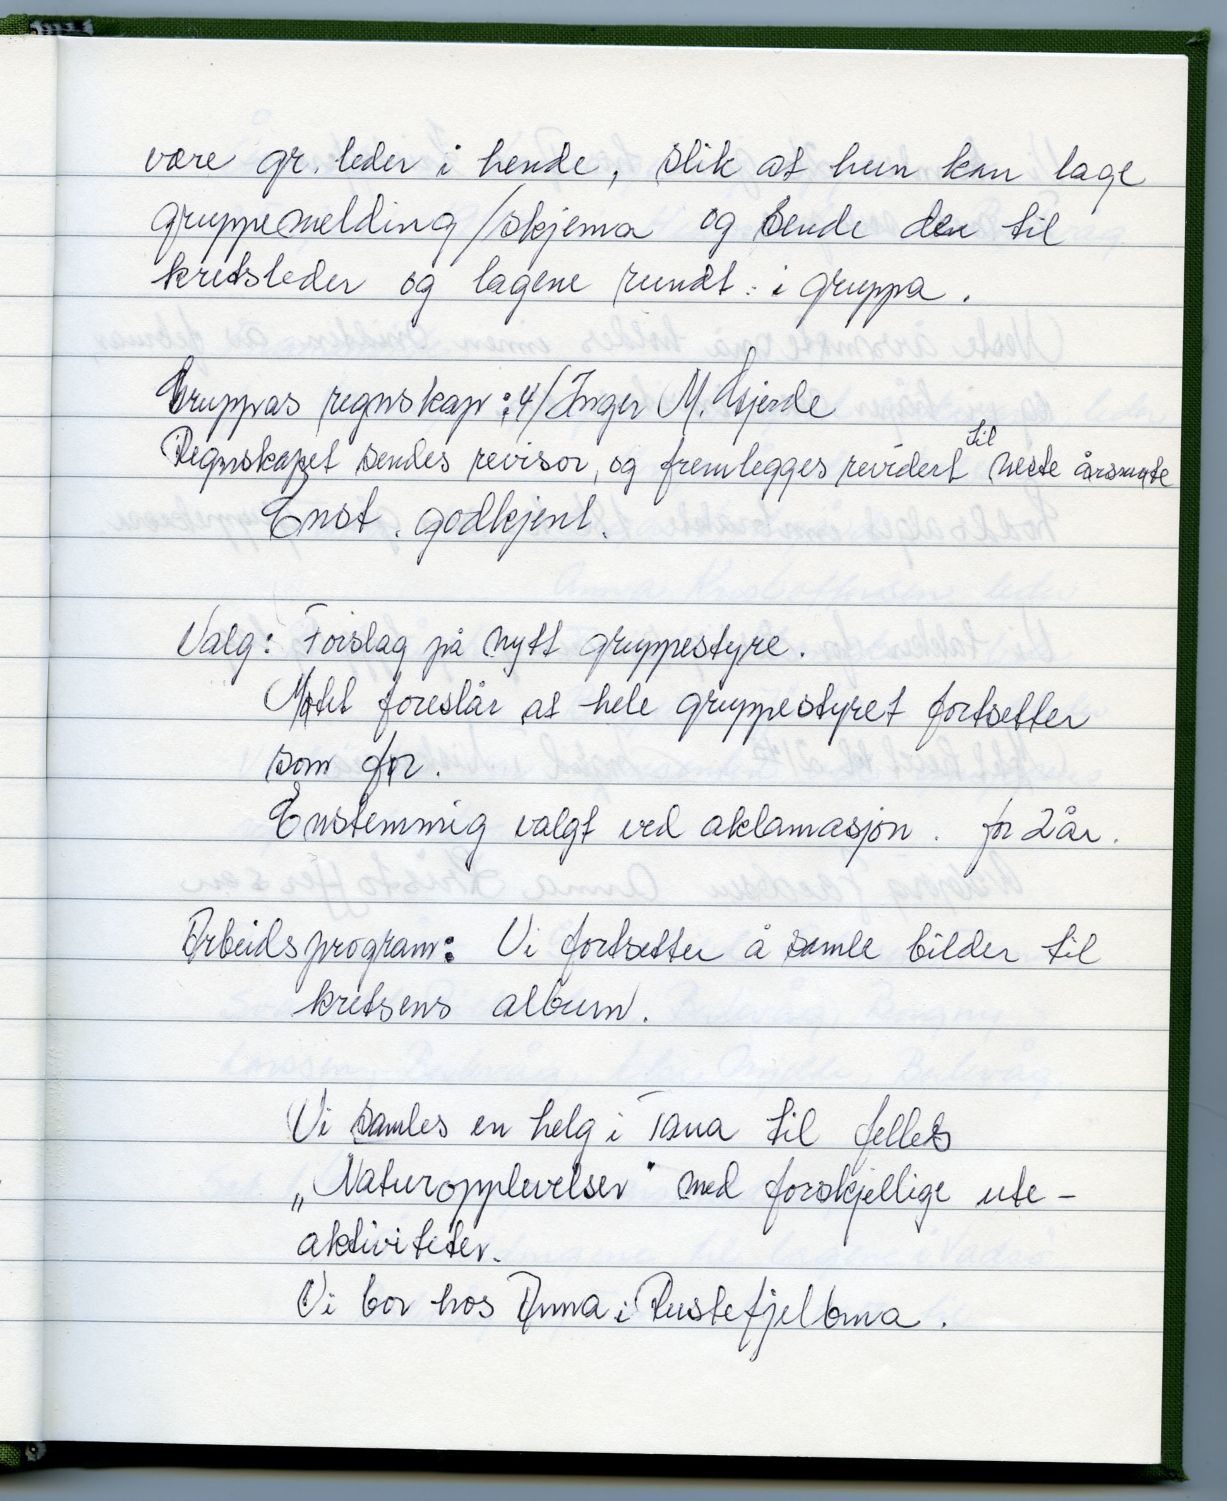 være gr. leder i hende, slik at hun kan lage
gruppemelding/skjema og sende den til
kretsleder og lagene rundt i gruppa.
Gruppas regnskap: v/Inger M. Gjerde
Regnskapet sendes revisor, og fremlegges revidert til neste årsmøte
Enst. godkjent.
Valg: Forslag på nytt gruppestyre.
Møtet foreslår at hele gruppestyret fortsetter
som før.
Enstemmig valgt ved aklamasjon. for 2 år.
Arbeidsprogram: Vi fortsetter å samle bilder til
kretsens album.
Vi samles en helg i Tana til felles
„Naturopplevelser" med forskjellige ute-
aktiviteter.
Vi bor hos Anna i Rustefjelbma.